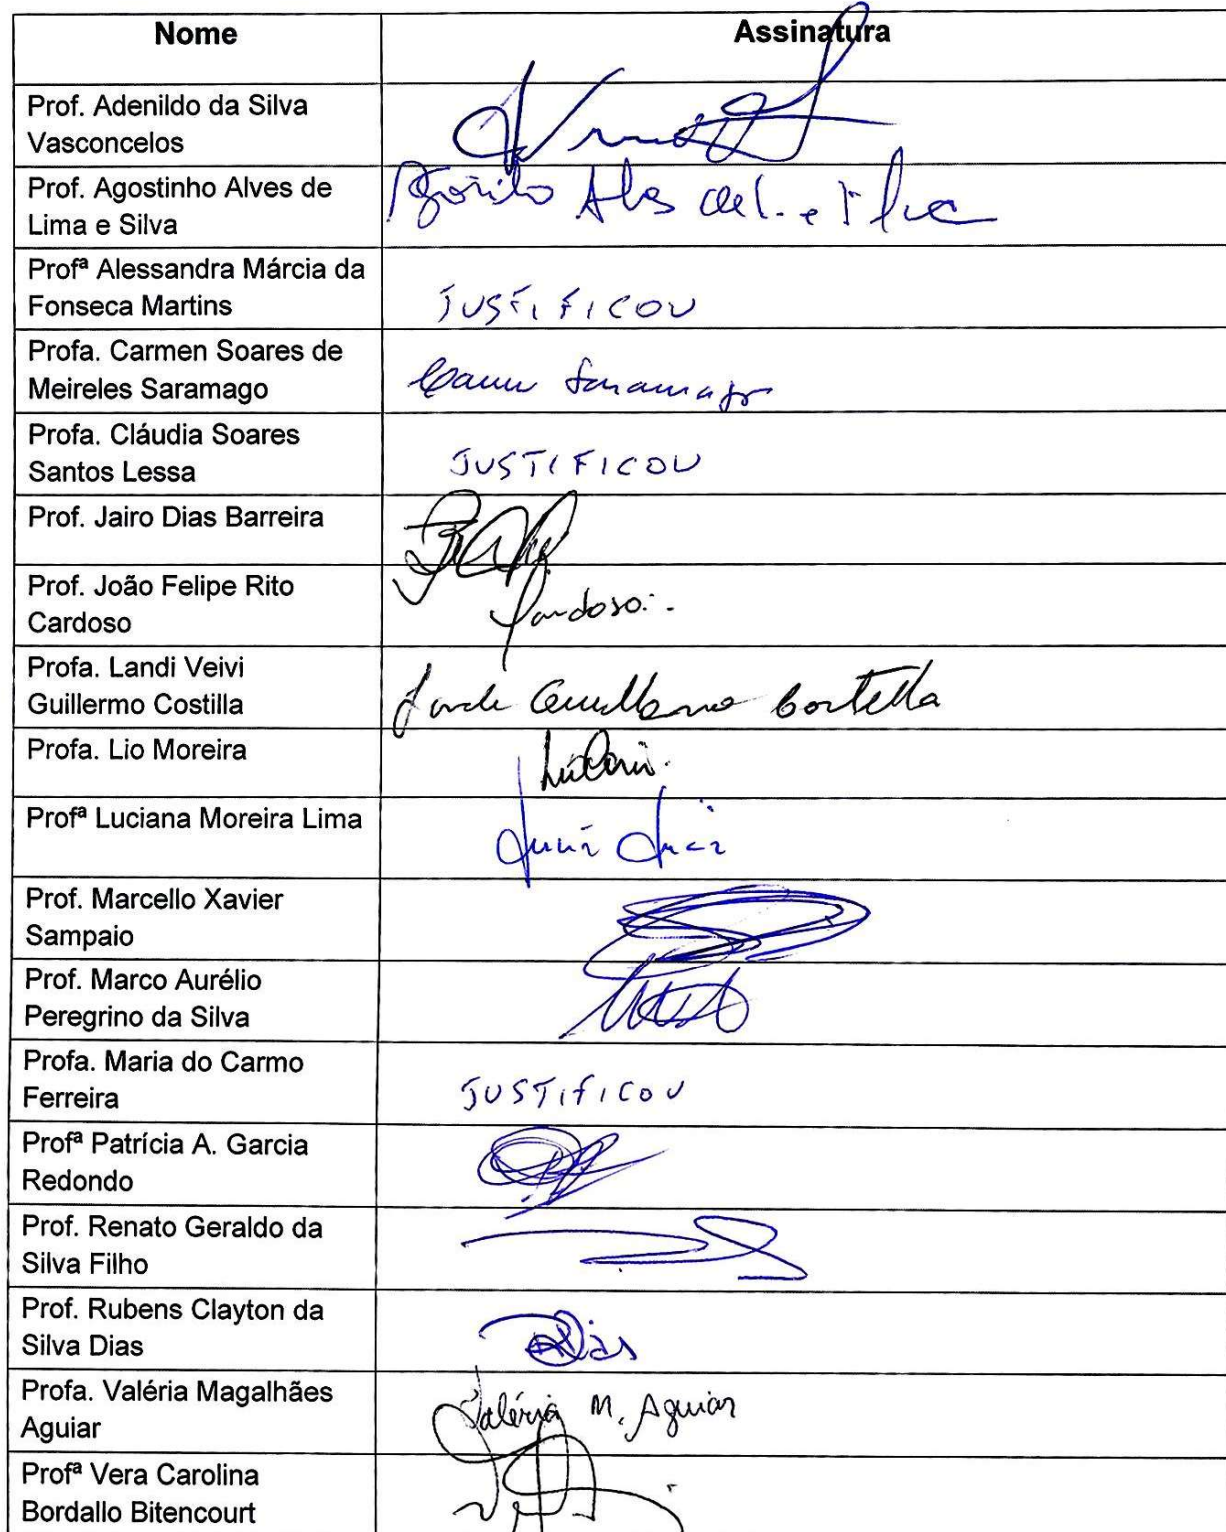 Nome Assinatura
Prof. Adenildo da Silva
Vasconcelos
Prof. Agostinho Alves de
Lima e Silva
Profª Alessandra Márcia da
Fonseca Martins
JUSTIFICOU
Profa. Carmen Soares de
Meireles Saramago
Saramago
Profa. Cláudia Soares
Santos Lessa
JUSTIFICOU
Prof. Jairo Dias Barreira
Prof. João Felipe Rito
Cardoso
Cardoso
Profa. Landi Veivi
Guillermo Costilla
Profa. Lio Moreira
Profª Luciana Moreira Lima
Prof. Marcello Xavier
Sampaio
Prof. Marco Aurélio
Peregrino da Silva
Profa. Maria do Carmo
Ferreira
JUSTIFICOU
Profª Patrícia A. Garcia
Redondo
Prof. Renato Geraldo da
Silva Filho
Prof. Rubens Clayton da
Silva Dias
Dias
Profa. Valéria Magalhães
Aguiar
Valéria M. Aguiar
Profª Vera Carolina
Bordallo Bitencourt